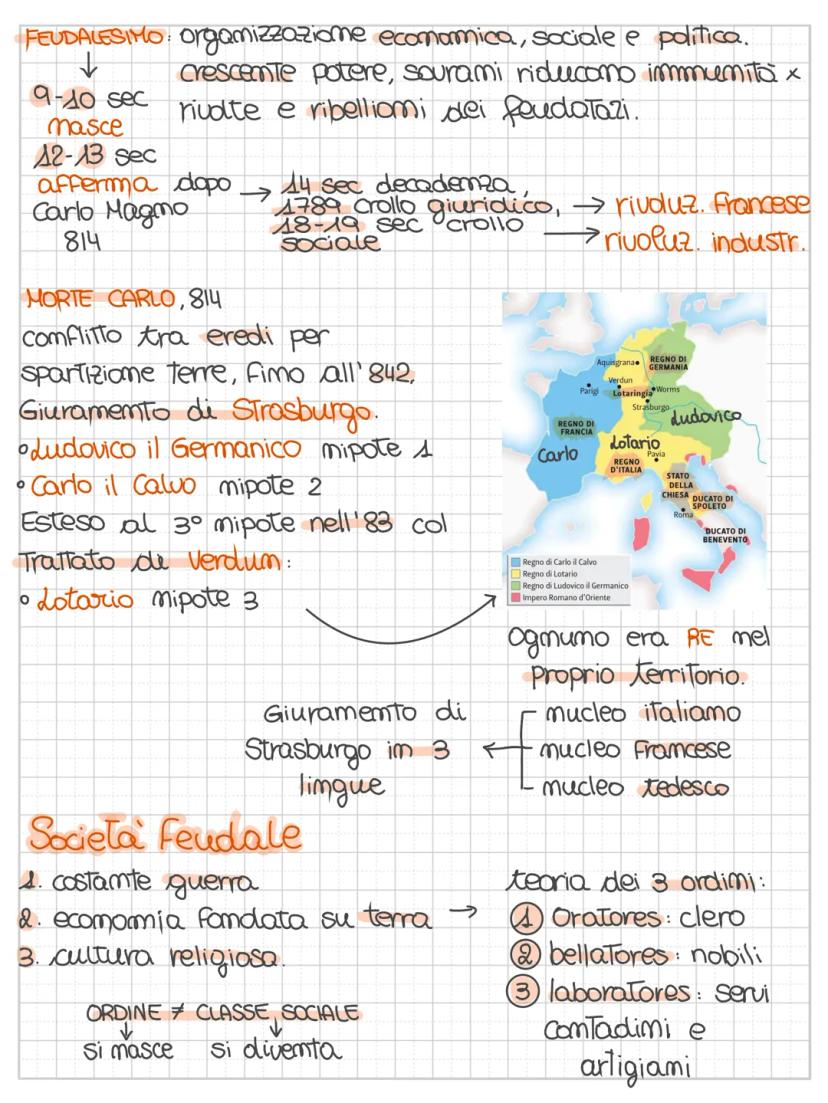 FEUDALESIMO: organizzazione economica, sociale e politica.
crescente potere, sovrani riducono immunità x
rivolte e ribellioni dei feudatari.
9-10 sec
nasce
12-13 sec
afferma dopo → 14 sec decadenza,
Carlo Magno 1789 crollo giuridico, → rivoluz. Francese
814 18-19 sec crollo → rivoluz. industr.
sociale
MORTE CARLO, 814
conflitto tra eredi per
spartizione terre, fino all'842,
Giuramento di Strasburgo.
°Ludovico il Germanico nipote 1
°Carlo il Calvo nipote 2
Esteso al 3° nipote nell'83 col
Trattato di Verdun:
°Lotario nipote 3
Aquisgrana
REGNO DI
GERMANIA
Verdun
Parigi
Lotaringia
Worms
Strasburgo
Ludovico
REGNO DI
FRANCIA
Lotario
Carlo
Pavia
REGNO
D'ITALIA
STATO
DELLA
CHIESA
DUCATO DI
SPOLETO
Roma
DUCATO DI
BENEVENTO
Regno di Carlo il Calvo
Regno di Lotario
Regno di Ludovico il Germanico
Impero Romano d'Oriente
Ognuno era RE nel
proprio territorio.
Giuramento di
Strasburgo in 3
lingue
nucleo italiano
nucleo Francese
nucleo tedesco
Società Feudale
1. costante guerra
2. economia fondata su terra →
3. cultura religiosa.
ORDINE ≠ CLASSE SOCIALE
si nasce si diventa
teoria dei 3 ordini:
1 Oratores: clero
2 bellatores: nobili
3 laboratores: servi
contadini e
artigiani